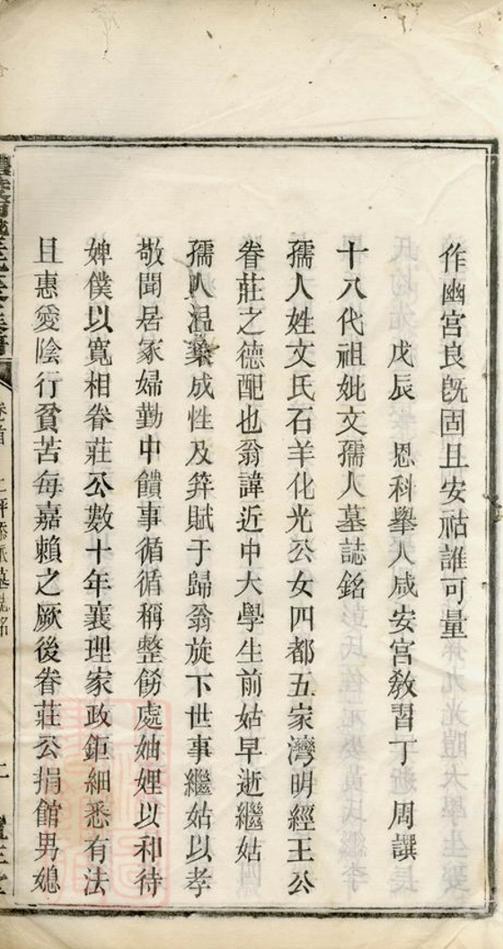 作幽宮良旣固且安祜誰可量
戊辰　恩科舉人咸安宮敎習丁周譔
十八代祖妣文孺人墓誌銘
孺人姓文氏石羊化光公女四都五家灣明經王公
眷莊之德配也翁諱近中大學生前姑早逝繼姑
孺人温藥成性及笄賦于歸翁旋下世事繼姑以孝
敬聞居冢婦勤中饋事循循稱整飭處妯娌以和待
婢僕以寬相眷莊公數十年襄理家政鉅細悉有法
且惠愛陰行貧苦每嘉賴之厥後眷莊公捐館男媳
卷首
墓誌銘